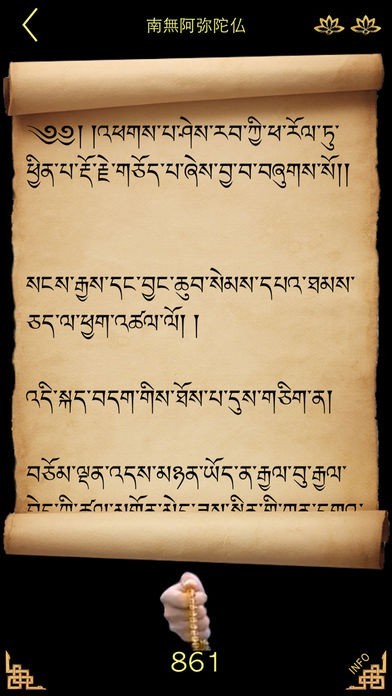 南無阿弥陀仏
༄༅། །འཕགས་པ་ཤེས་རབ་ཀྱི་ཕ་རོལ་ཏུ་
ཕྱིན་པ་རྡོ་རྗེ་གཅོད་པ་ཞེས་བྱ་བ་བཞུགས་སོ།།
སངས་རྒྱས་དང་བྱང་ཆུབ་སེམས་དཔའ་ཐམས་
ཅད་ལ་ཕྱག་འཚལ་ལོ། །
འདི་སྐད་བདག་གིས་ཐོས་པ་དུས་གཅིག་ན།
བཅོམ་ལྡན་འདས་མཉན་ཡོད་ན་རྒྱལ་བུ་རྒྱལ་
861
INFO